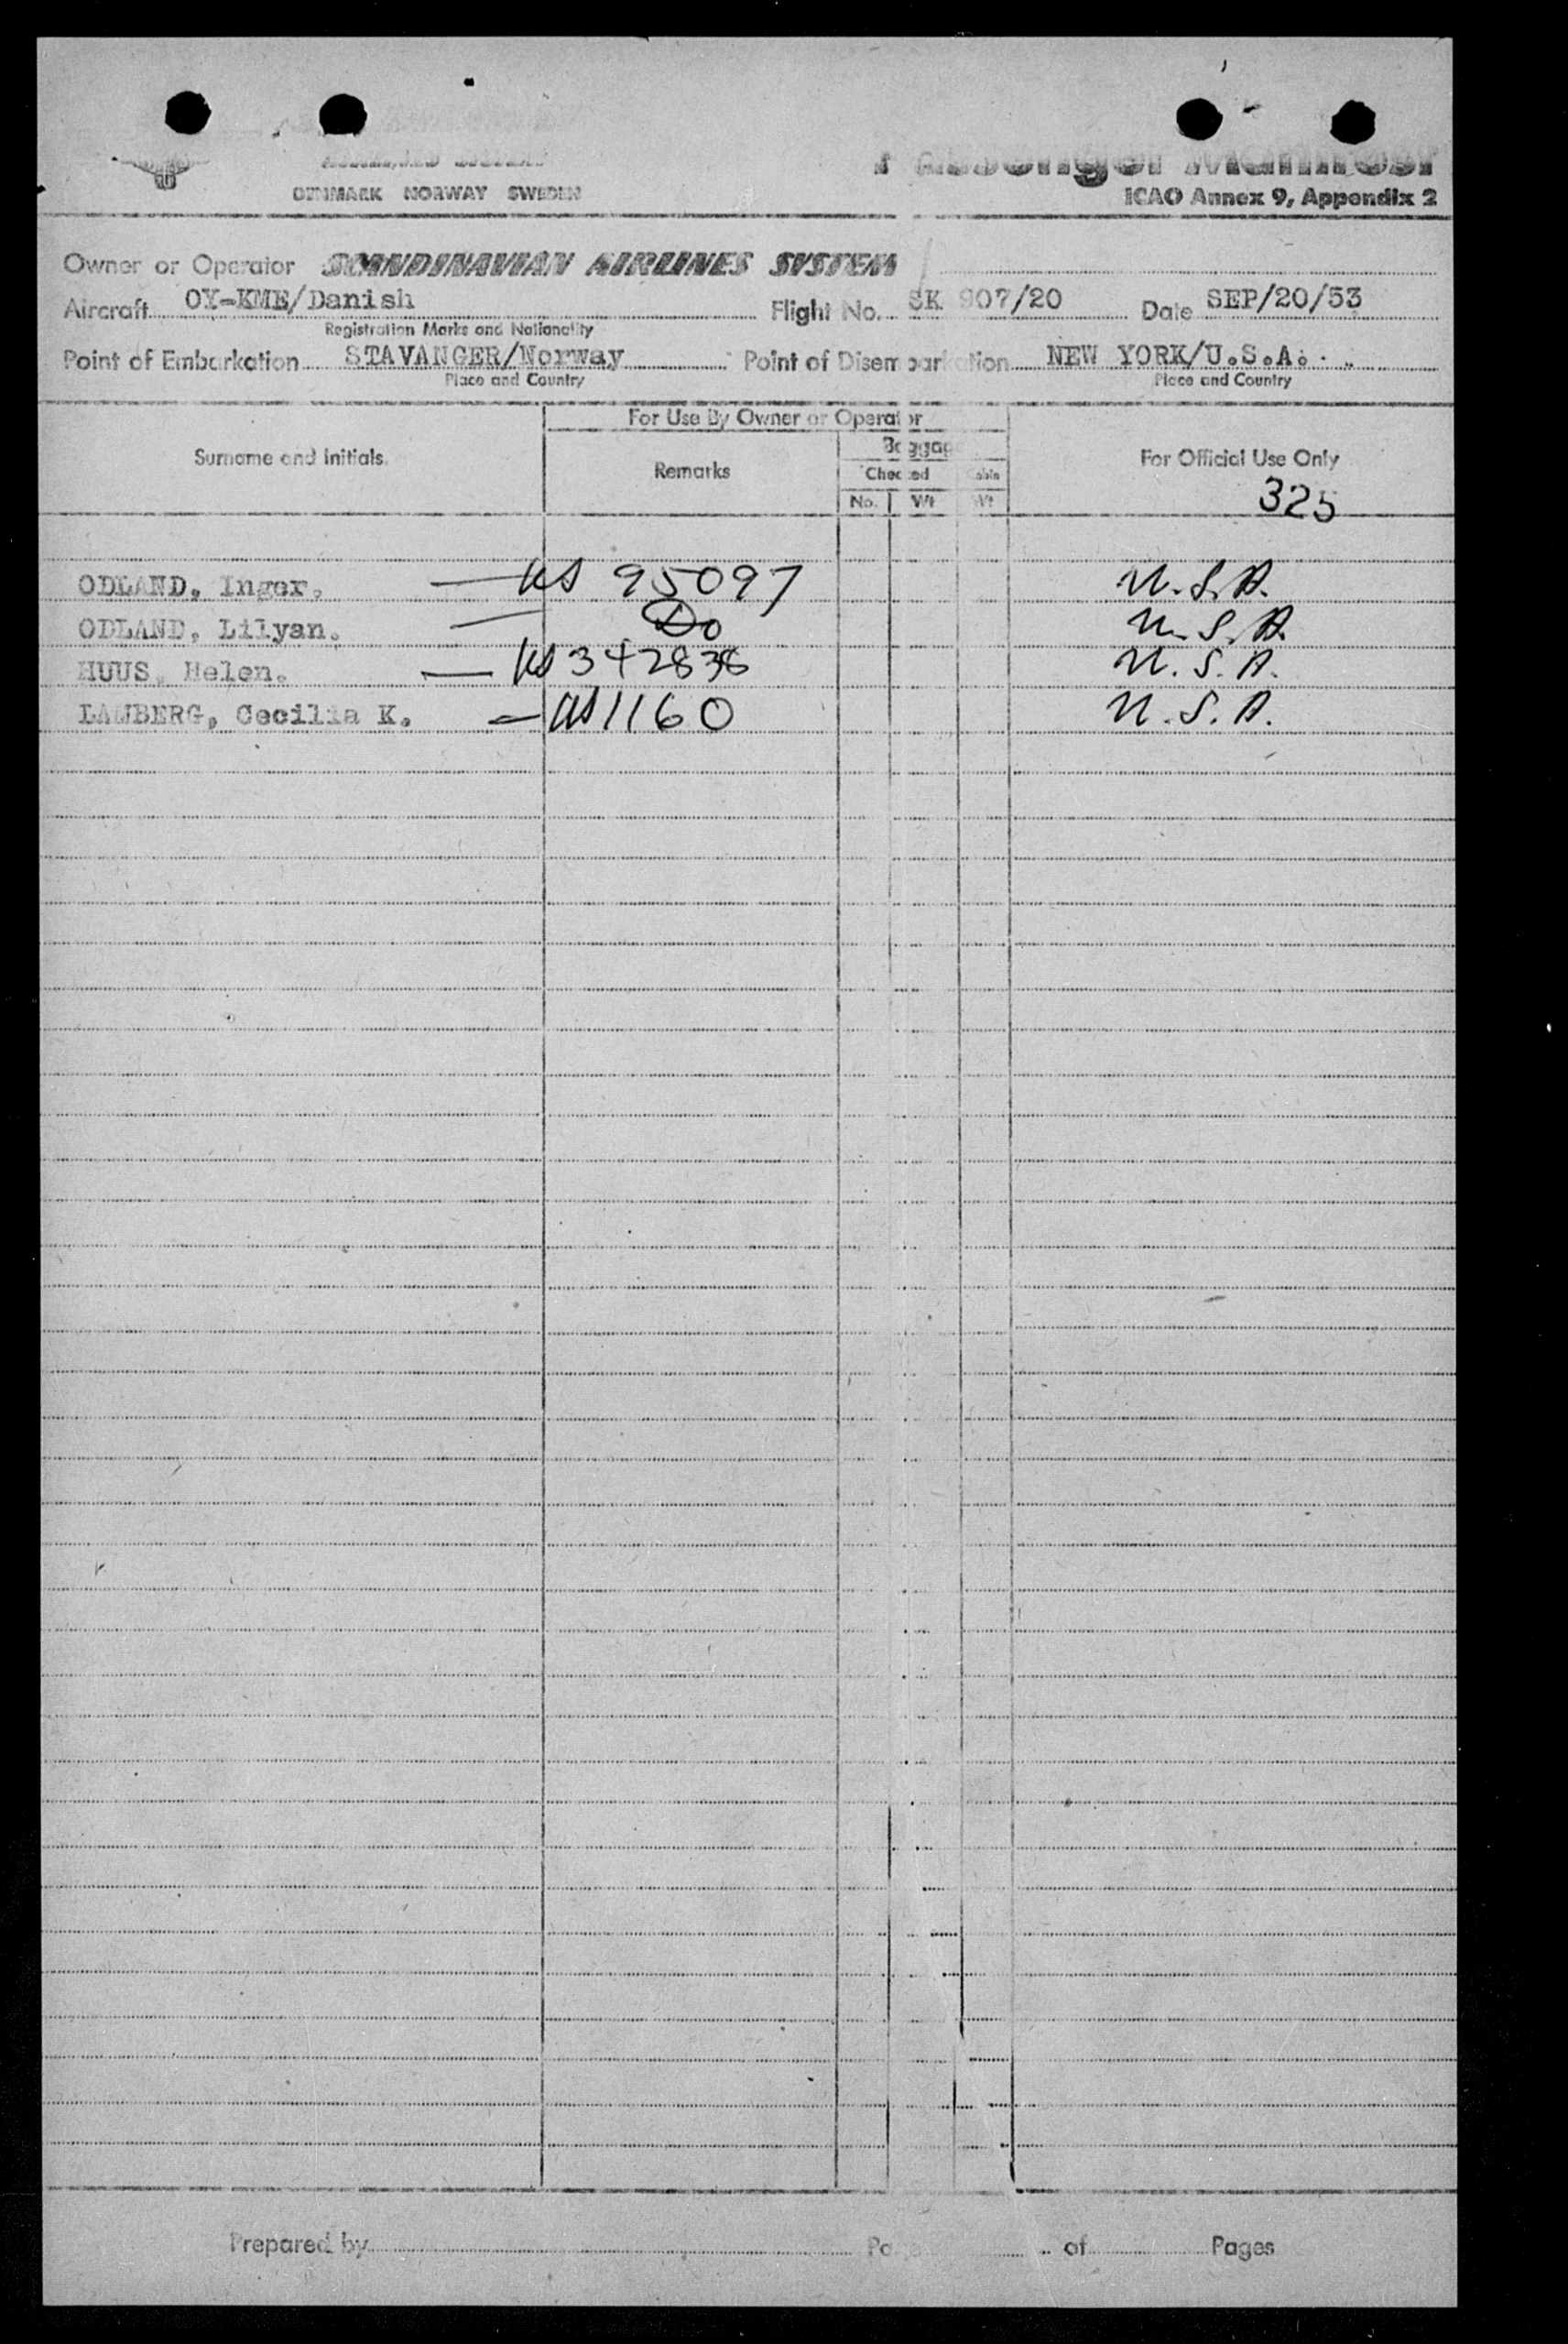 DENMARK NORWAY SWEDEN
Passenger Manifest
ICAO Annex 9, Appendix 2
Owner or Operator SCANDINAVIAN AIRLINES SYSTEM
Aircraft OY-KME/Danish Flight No. SK 907/20 Date SEP/20/53
Registration Marks and Nationality
Point of Embarkation STAVANGER/Norway Point of Disembarkation NEW YORK/U.S.A.
Place and Country Place and Country
For Use By Owner or Operator
Surname and Initials Remarks Baggage For Official Use Only
Checked Cabin
No. Wt Wt 325
ODLAND, Inger. — US 95097 U.S.A.
ODLAND, Lilyan. — Do U.S.A.
HUUS, Helen. — US 342838 U.S.A.
LAMBERG, Cecilia K. — US 1160 U.S.A.
Prepared by Page of Pages